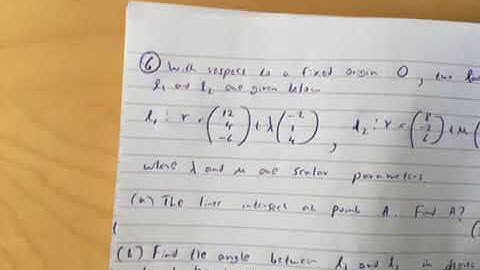 ⑥ With respect to a fixed origin O, two
l₁ and l₂ are given below
l₁ : r = (12 4 -6) + λ (-2 1 4) , l₂ : r = (8 -2 6) + μ
where λ and μ are scalar parameters
(a) The lines intersect at point A. Find A?
(b) Find the angle between l₁ and l₂ in